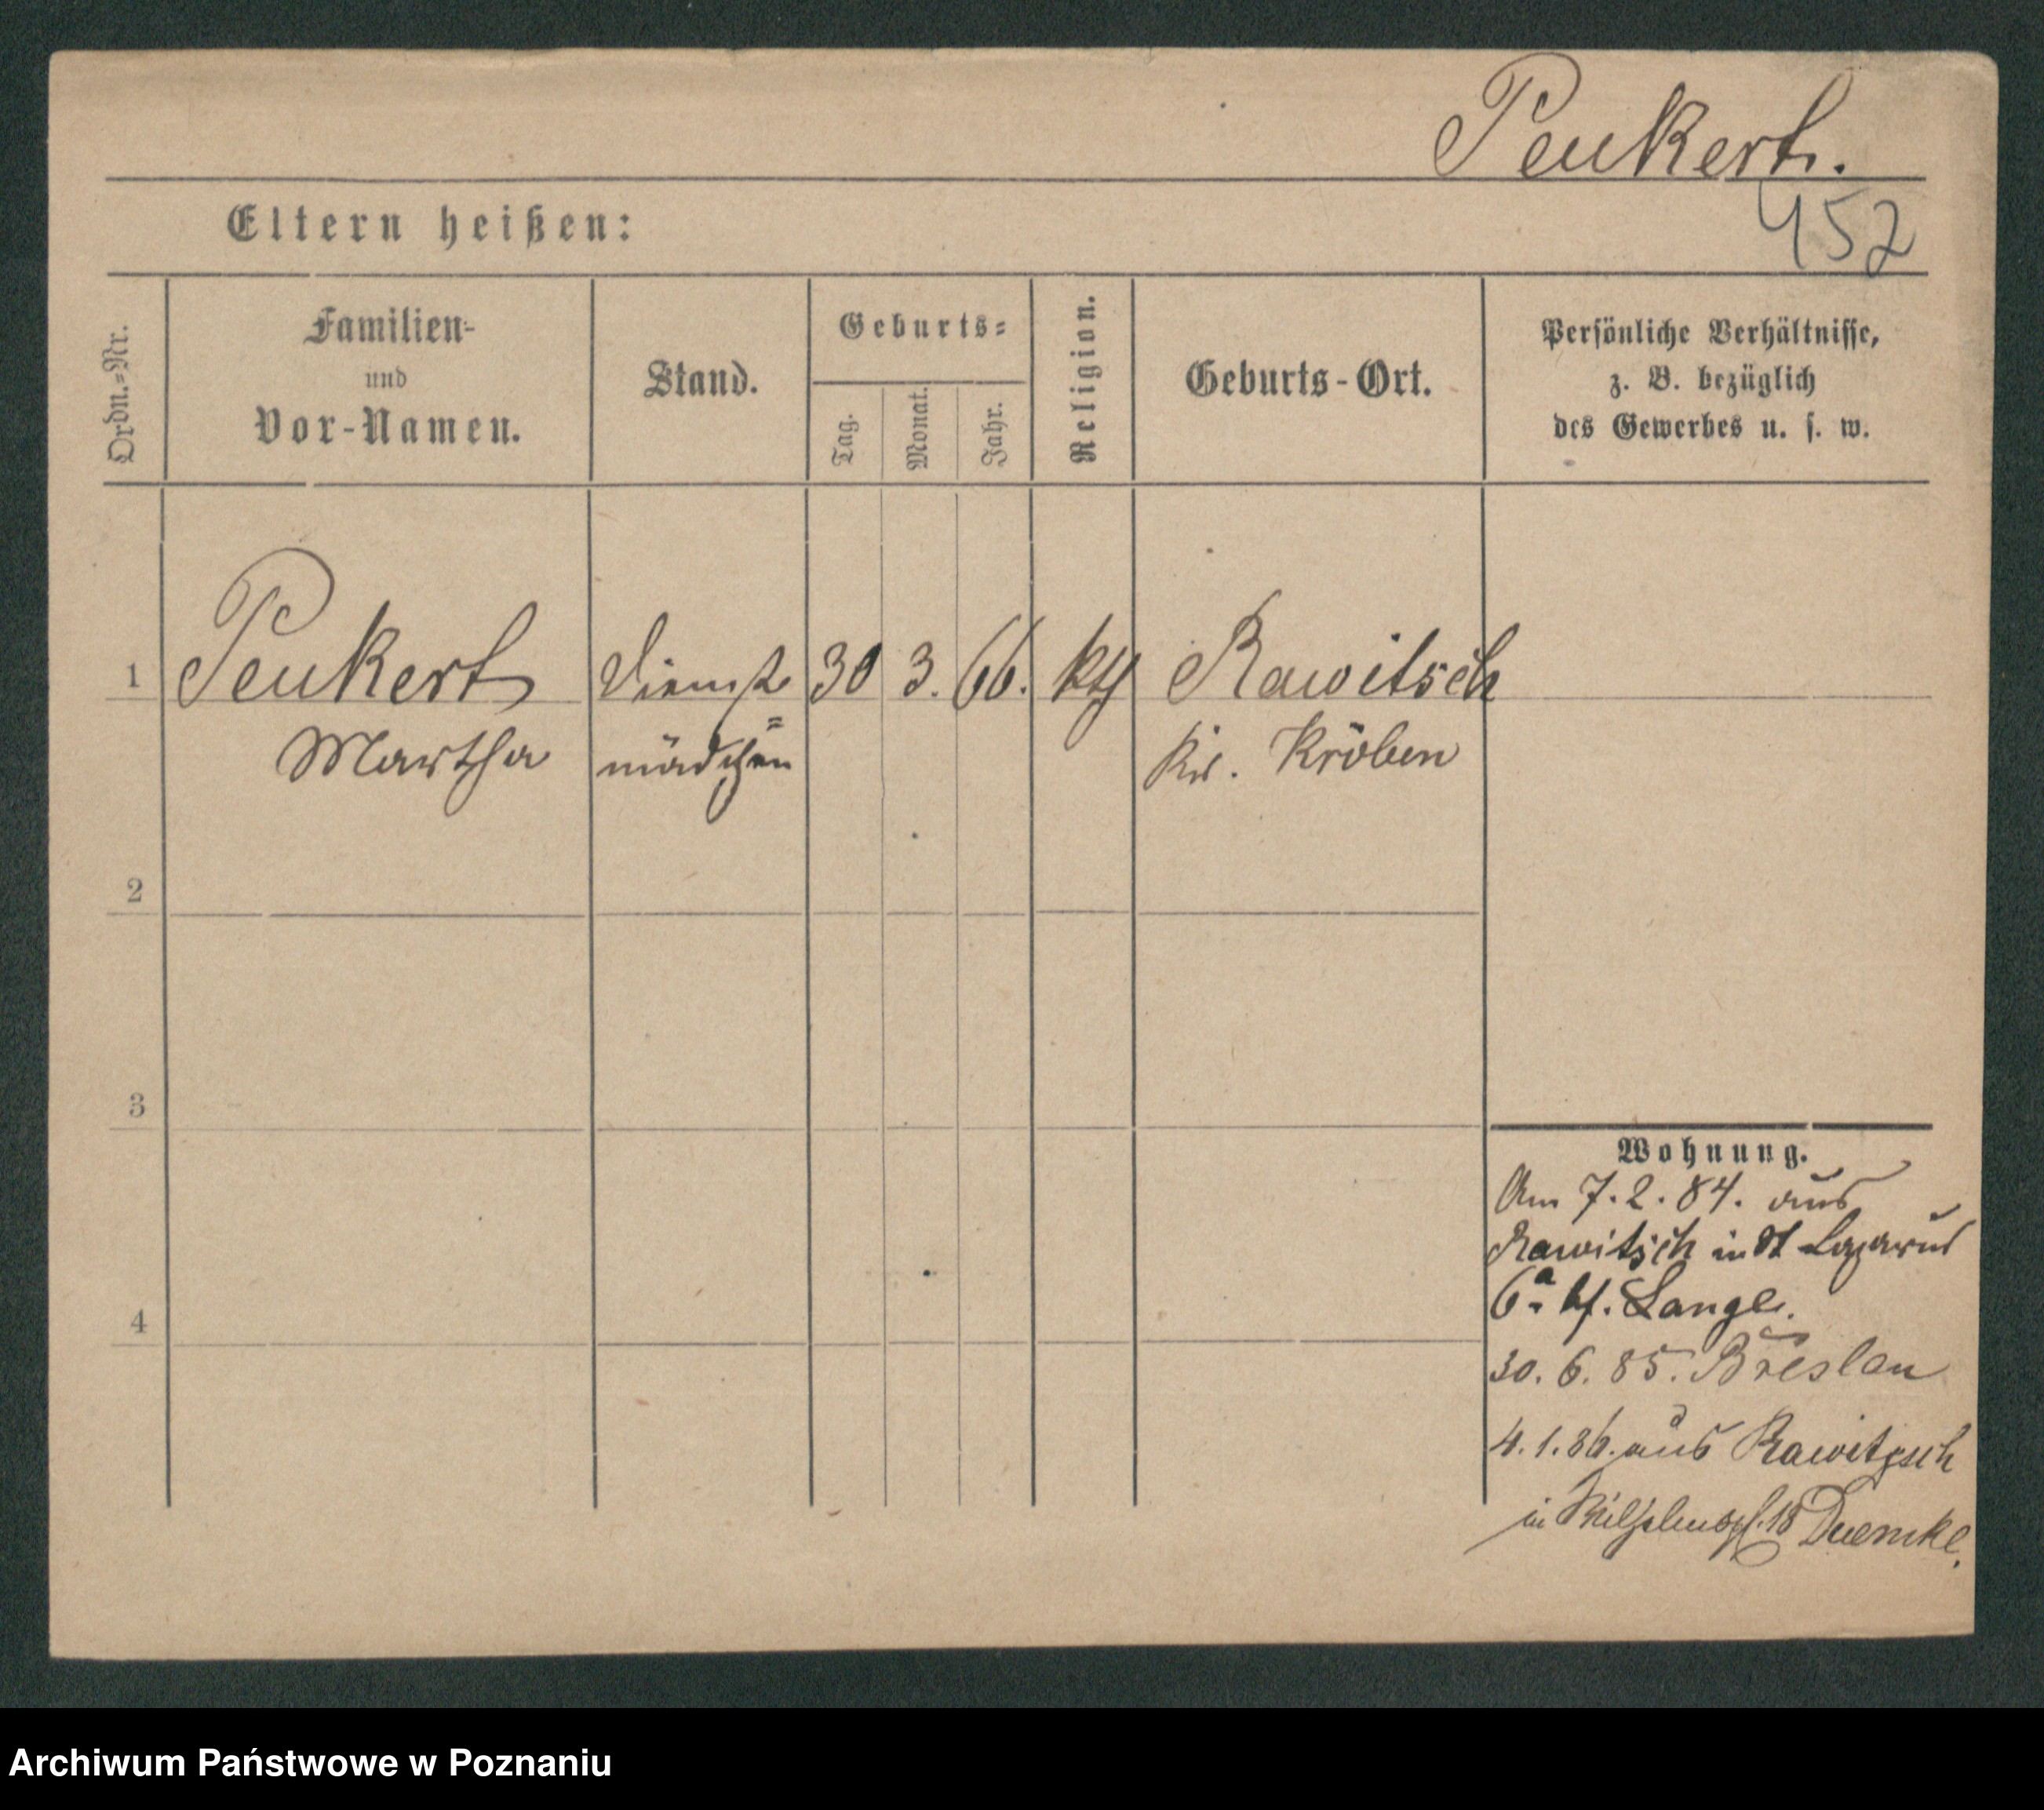 Peukert.
452
Eltern heißen:
Ordn.-Nr.
Familien-
und
Vor-Namen.
Stand.
Geburts-
Tag.
Monat.
Jahr.
Religion.
Geburts-Ort.
Persönliche Verhältnisse,
z. B. bezüglich
des Gewerbes u. s. w.
1 Peukert Dienst= 30 3. 66. kth Rawitsch
Martha mädchen Kr. Kröben
2
3
4
Wohnung.
Am 7. 2. 84. aus
Rawitsch in St Lazarus
6a. bf. Lange.
30. 6. 85. Breslau
4. 1. 86. aus Rawitzsch
in Wilhelmspl. 18
Archiwum Państwowe w Poznaniu